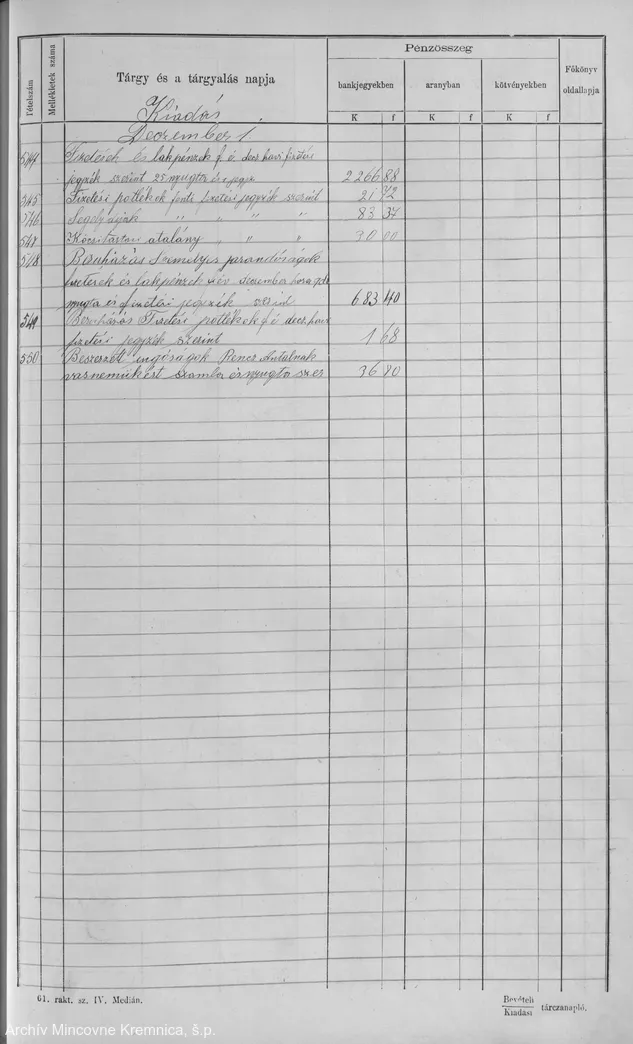 Tételszám
Mellékletek száma
Tárgy és a tárgyalás napja
Pénzösszeg
bankjegyekben
aranyban
kötvényekben
Főkönyv
oldallapja
K f K f K f
Kiadás
Deczember 1.
544 Fizetések és lakpénzek f é decz. havi fizetési
jegyzék szerint 25 nyugta és jegyz 2266 88
545 Fizetési pótlékok fenti fizetési jegyzék szerint 21 72
546 Segélydíjak " " " " 83 37
547 Kocsitartási átalány " " " 30 00
548 Bányászás Személyes járandóságok
fizetések és lakpénzek f év deczember hóra
nyugta és fizetési jegyzék szerint 683 40
549 Fizetési pótlékok f é decz. havi
fizetési jegyzék szerint 1 68
550 Beszerzett ingóságok Antalnak
vasneműkért számla és nyugta szer 36 80
61. rakt. sz. IV. Medián.
Bevételi
Kiadási tárczanapló.
Archív Mincovne Kremnica, š.p.